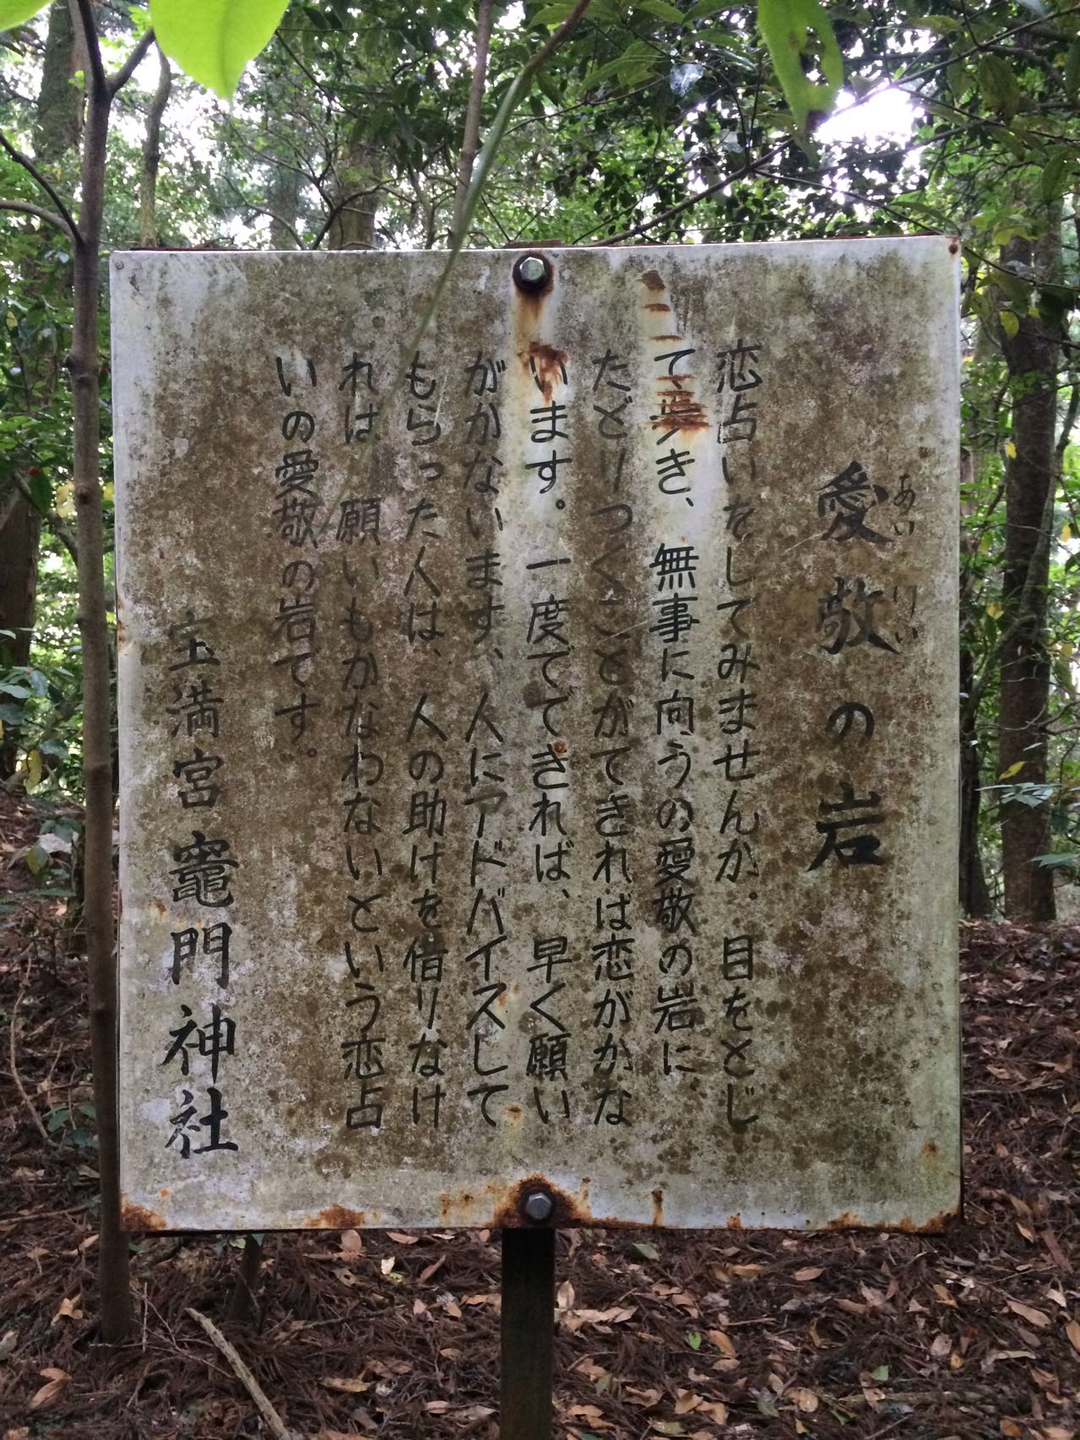 あいけい
愛敬の岩
恋占いをしてみませんか。目をとじ
て歩き、無事に向うの愛敬の岩に、
たどりつくことができれば恋がかな
います。一度でできれば、早く願い
がかないます、人にアドバイスして
もらった人は、人の助けを借りなけ
れば、願いもかなわないという恋占
いの愛敬の岩です。
宝満宮竈門神社